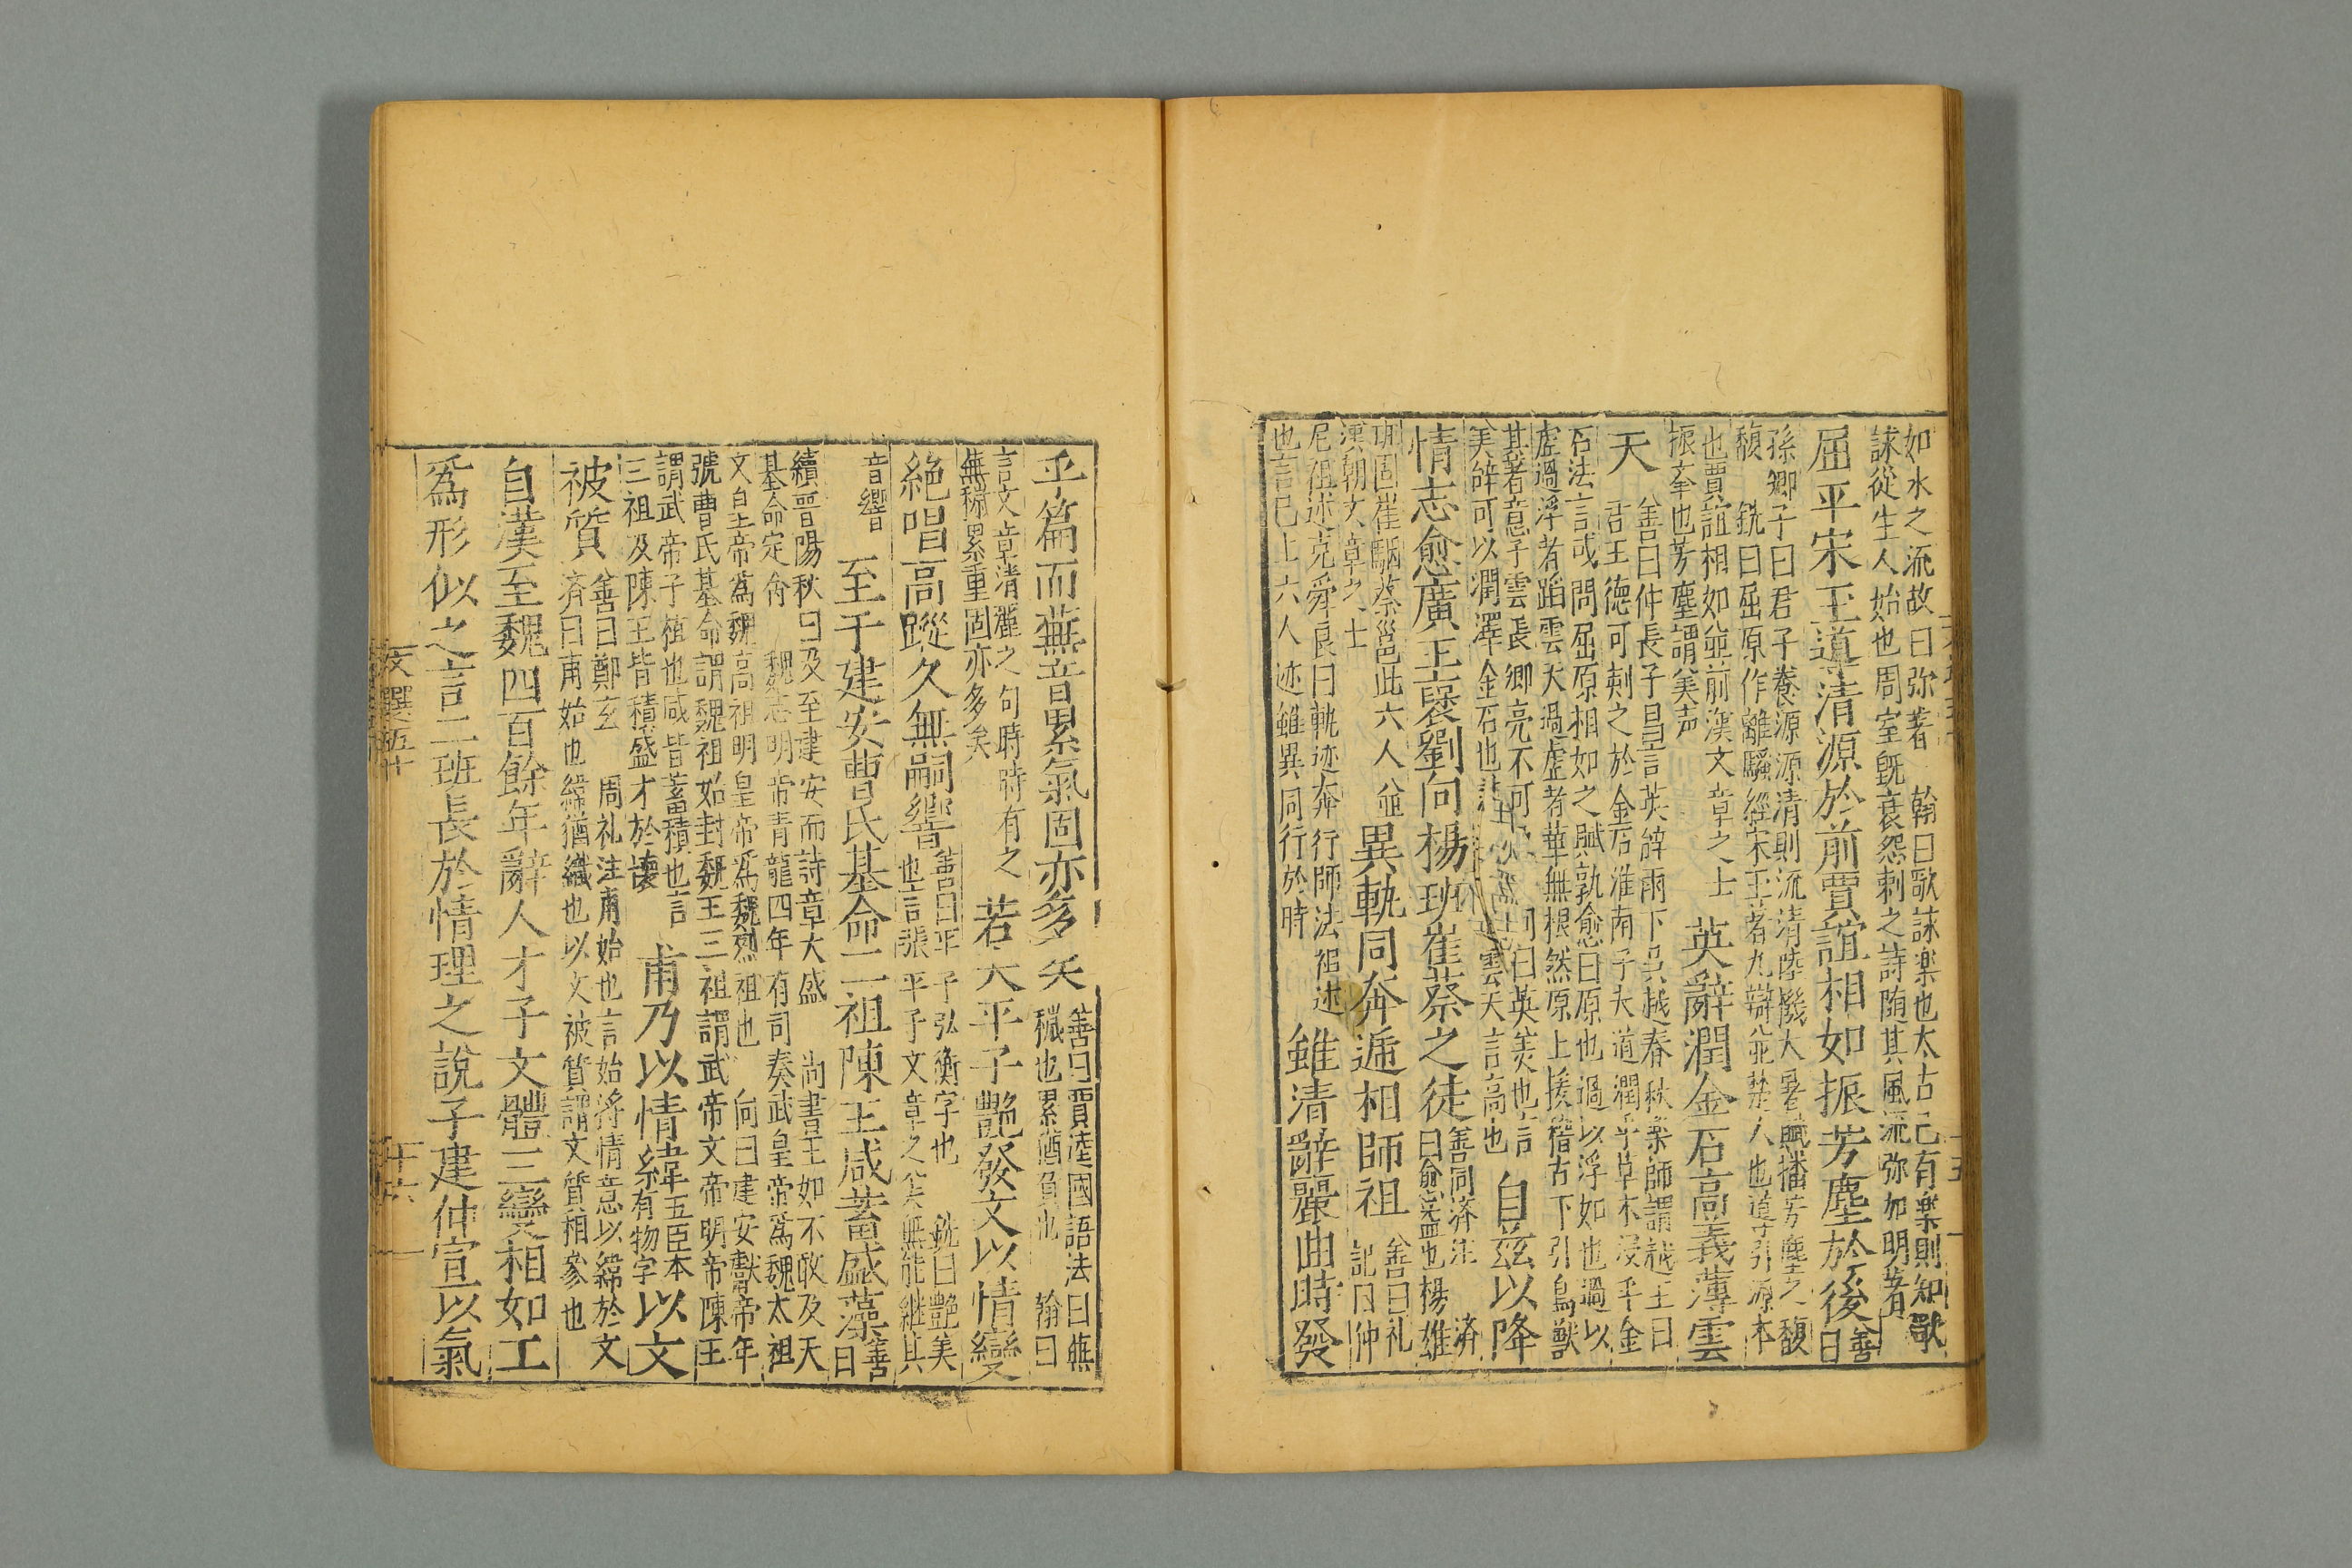 如水之流故曰弥著 翰曰歌詠楽也太古已有楽則知歌
詠從生人始也周室旣衰怨刺之詩随其風流弥如明著
屈平宋玉導清源於前賈誼相如振芳塵於後善曰
孫卿子曰君子養源源清則流清陸機大暑賦播芳塵之馥
馥 銑曰屈原作離騷經宋玉著九辯並楚人也導引源本
也賈誼相如並前漢文章之士
振奉也芳塵謂美声
英辭潤金石高義薄雲
天
善曰仲長子昌言英辞雨下吳越春秋楽師謂越王曰
君王德可刻之於金石淮南子大道潤乎草木浸乎金
石法言或問屈原相如之賦孰愈曰原也過以浮如也過以
虛過浮者蹈雲天過虛者華無根然原上援稽古下引鳥獸
其著意子雲長卿亮不可
美辞可以潤澤金石也
曰英美也言
雲天言高也
自茲以降
情志愈廣王襃劉向楊班崔蔡之徒
善同済注 済
曰愈益也楊雄
班固崔駰蔡邕此六人並
漢朝文章之士
異軌同奔遞相師祖
善曰礼
記曰仲
尼祖述克舜良曰軌迹奔行師法祖述
也言已上六人迹雖異同行於時
雖清辭麗曲時發
乎篇而蕪音累氣固亦多矣
善曰賈逵國語注曰蕪
穢也累猶負也 翰曰
言文章清麗之句時時有之
無穢累重固亦多矣
若夫平子艷發文以情變
絕唱高蹤久無嗣響
善曰平子弘衡字也 銑曰艷美
也言張平子文章之美無能継其
音響
至于建安曹氏基命二祖陳王咸蓄盛藻善曰
續晋陽秋曰及至建安而詩章大盛 尚書王如不敢及天
基命定命 魏志明帝青龍四年有司奏武皇帝為魏太祖
文皇帝為魏高祖明皇帝為魏烈祖也 向曰建安獻帝年
號曹氏基命謂魏祖始封魏王三祖謂武帝文帝明帝陳王
謂武帝子植也咸皆蓄積也言
三祖及陳王皆積盛才於懐
甫乃以情緯
五臣本
有物字
以文
被質
善曰鄭玄 周礼注甫始也言始將情意以緯於文
済曰甫始也緯猶織也以文被質謂文質相參也
自漢至魏四百餘年辭人才子文體三變相如工
為形似之言二班長於情理之說子建仲宣以氣
文選五十